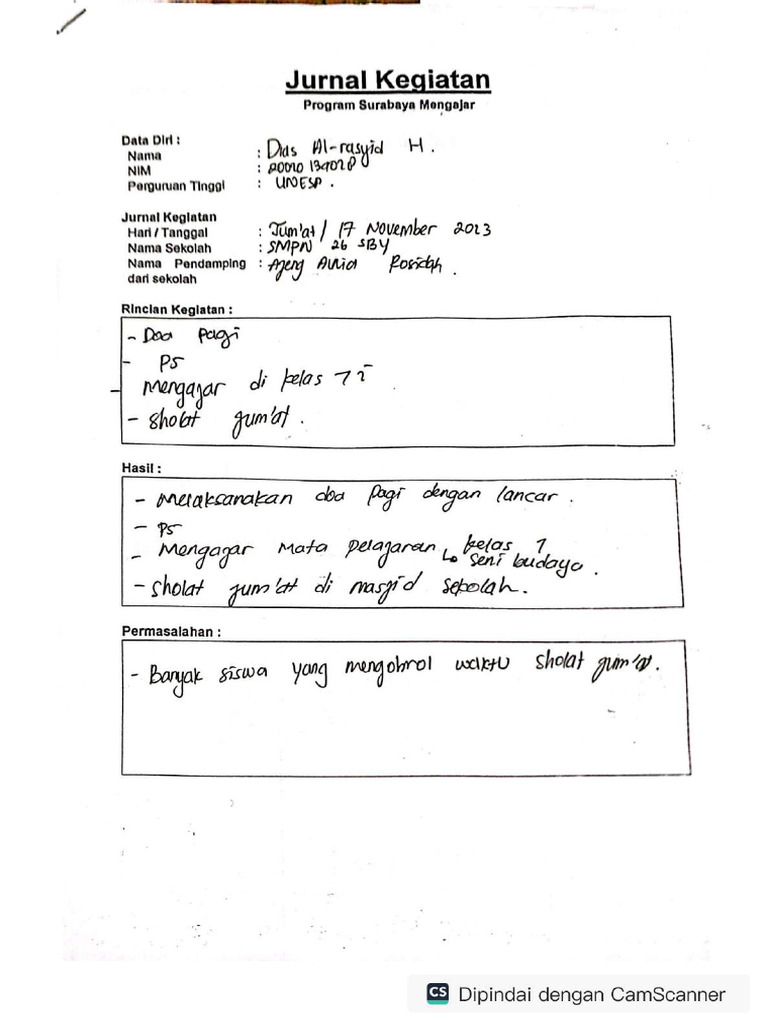 Jurnal Kegiatan
Program Surabaya Mengajar
Data Diri :
Nama : Dias Al-rasyid H.
NIM :
Perguruan Tinggi : UNESP.
Jurnal Kegiatan
Hari / Tanggal : Jum'at / 17 November 2023
Nama Sekolah : SMPN 26 SBY
Nama Pendamping : Ajeng Rosidah.
dari sekolah
Rincian Kegiatan :
- Doa pagi
- PS
- mengajar di kelas 7 i
- sholat jum'at.
Hasil :
- Melaksanakan doa pagi dengan lancar.
- PS
- Mengajar Mata pelajaran kelas 7
↳ seni budaya.
- sholat jum'at di masjid sekolah.
Permasalahan :
- Banyak siswa yang mengobrol waktu sholat jum'at.
CS Dipindai dengan CamScanner